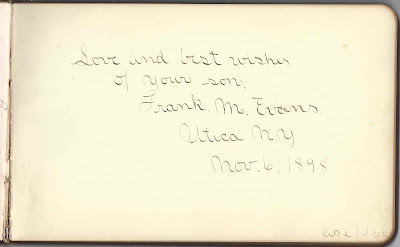 Love and best wishes
of your son.
Frank. M. Evans.
Utica N Y
Nov. 6, 1898
age